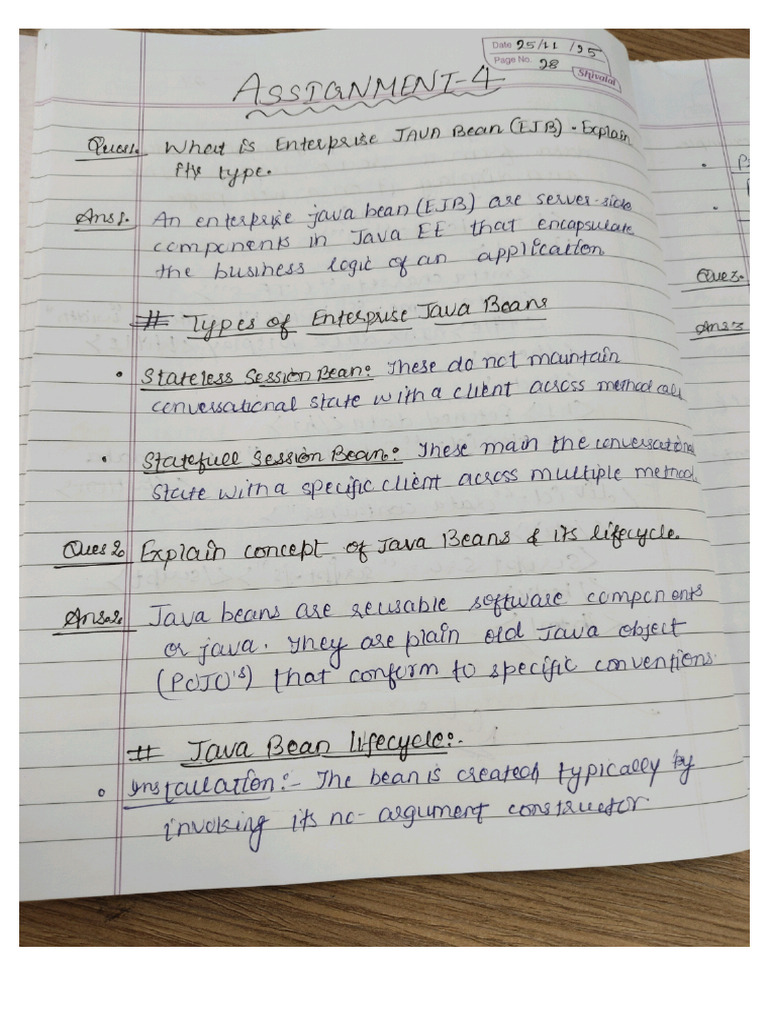 Date 25/11/25
Page No. 28
Shivalal
ASSIGNMENT-4
Ques1. What is Enterprise JAVA Bean (EJB). Explain
its type.
Ans1. An enterprise java bean (EJB) are server-side
components in Java EE that encapsulate
the business logic of an application
# Types of Enterprise Java Beans
• Stateless Session Bean: These do not maintain
conversational state with a client across method call
• Statefull Session Bean: These main the conversational
state with a specific client across multiple method
Ques 2. Explain concept of Java Beans & its lifecycle.
Ans2. Java beans are reusable software components
or java. They are plain old Java object
(POJO's) that conform to specific conventions.
# Java Bean lifecycle:.
• Installation:- The bean is created typically by
invoking its no-argument constructor
Ques.
Ans